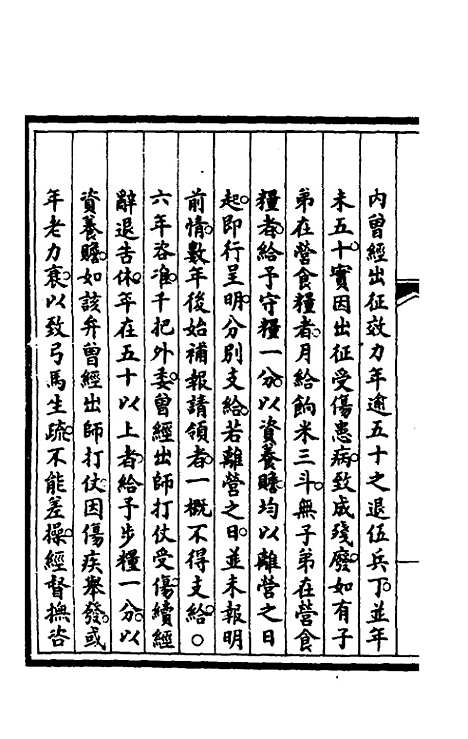 內曾經出征效力年逾五十之退伍兵丁並年
未五十實因出征受傷患病致成殘廢如有子
弟在營食糧者月給餉米三斗無子弟在營食
糧者給予守糧一分以資養贍均以離營之日
起即行呈明分別支給若離營之日並未報明
前情數年後始補報請領者一概不得支給○
六年咨准千把外委曾經出師打仗受傷續經
辭退告休年在五十以上者給予步糧一分以
資養贍如該弁曾經出師打仗因傷疾舉發或
年老力衰以致弓馬生疏不能差操經督撫咨